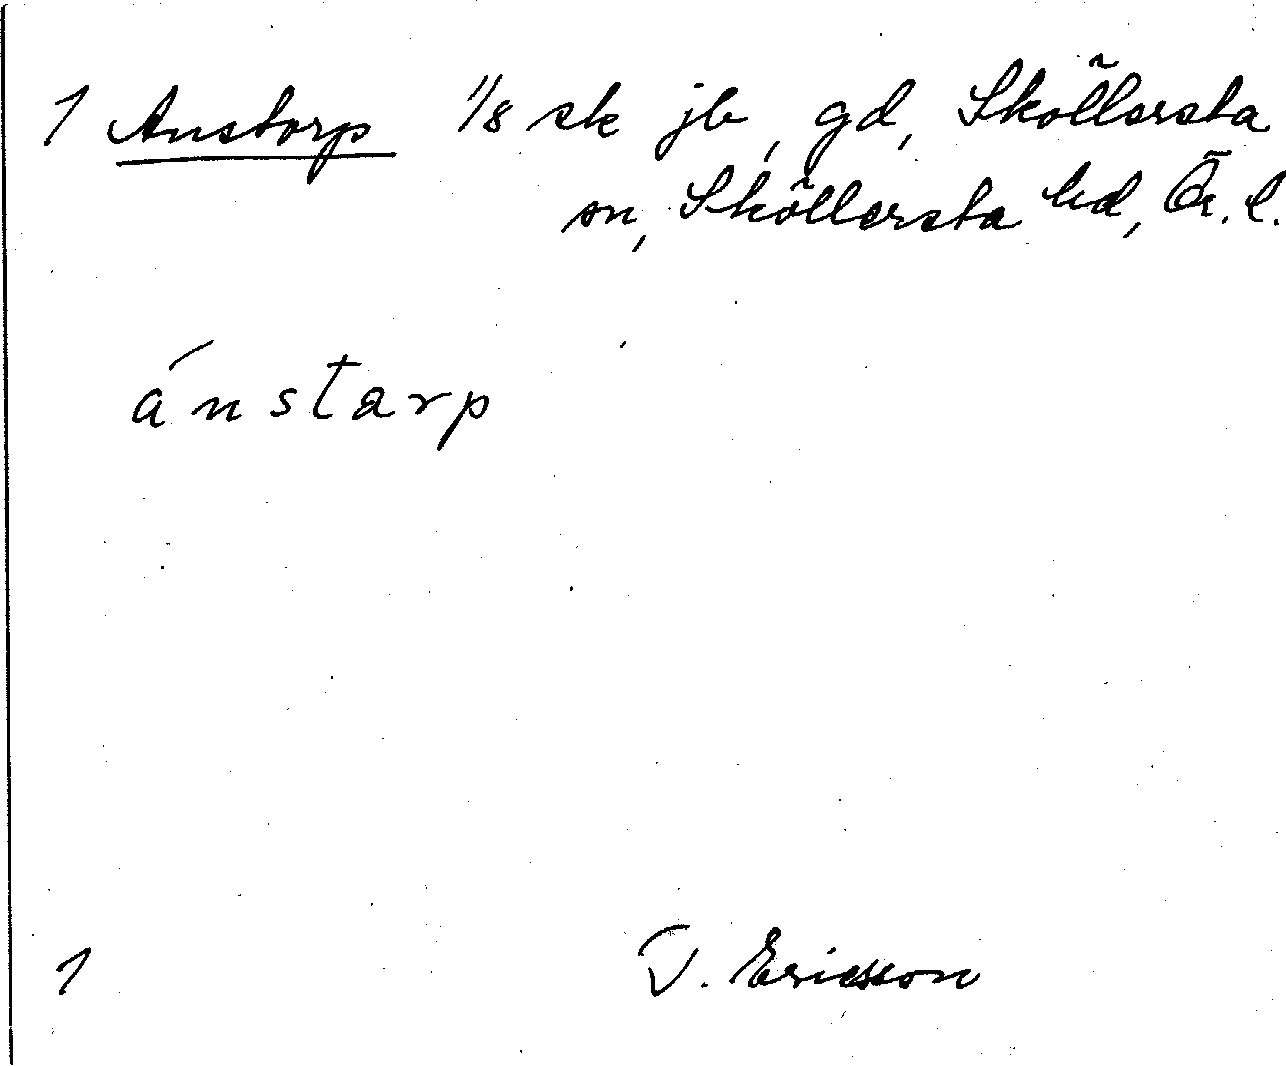 1 Anstorp 1/8 sk jb, gd, Sköllersta
sn, Sköllersta hd, Ör. l.
ánstarp
1 V. Ericsson